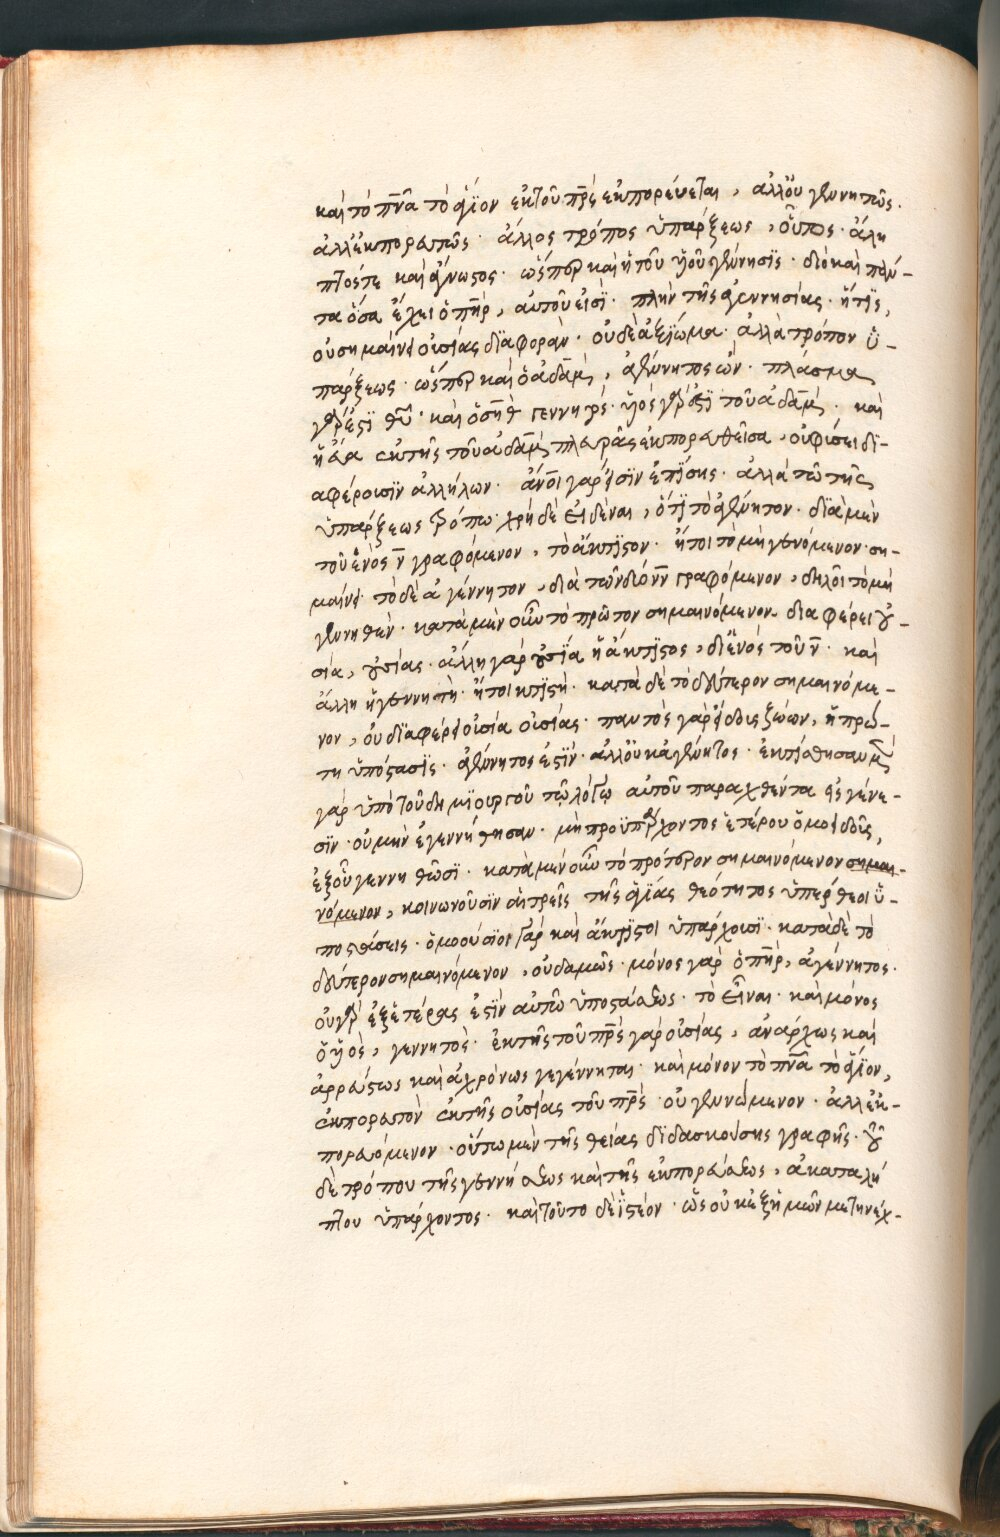 καὶ τὸ πν̅α τὸ ἅγϊον ἐκ τοῦ πρ̅ς ἐκπορεύεται, ἀλλ' οὐ γεννητῶς.
ἀλλ' ἐκπορευτῶς· ἄλλος τρόπος ὑπάρξεως, οὗτος· ἄλη
πτος τε καὶ ἄγνωστος· ὥσπερ καὶ ἡ τοῦ υἱοῦ γέννησϊς· διὸ καὶ πάν-
τα ὅσα ἔχει ὁ πη̅ρ, αὐτοῦ εἰσϊ· πλὴν τῆς ἀγεννησίας· ἥτϊς,
οὐ σημαίνει οὐσίας δϊαφορὰν· οὐδὲ ἀξϊωμα· ἀλλὰ τρόπον ὑ-
πάρξεως· ὥσπερ καὶ ὁ ἀδὰμ, ἀγέννητος ὢν· πλάσμα
γάρ ἐστϊ θυ̅· καὶ ὁ σὴθ γεννητός· υἱὸς γάρ ἐστϊ τοῦ ἀδάμ· καὶ
ἡ εὔα ἐκ τῆς τοῦ ἀδὰμ πλευρᾶς ἐκπορευθεῖσα, οὐ φύσει δϊ-
αφέρουσϊν ἀλλήλων· ἄνο̅ι γάρ εἰσϊν ἐπίσης· ἀλλὰ τῶ τῆς
ὑπάρξεως τρόπω· χρὴ δὲ εἰδέναι, ὅτϊ τὸ ἀγένητον· δϊὰ μὲν
τοῦ ἑνὸς ν̅ γραφόμενον, τὸ ἄκτϊστον· ἤτοι τὸ μὴ γενόμενον ση-
μαίνει· τὸ δὲ ἀγέννητον, διὰ τῶν δύο ν̅ν̅ γραφόμενον, δηλοῖ τὸ μὴ
γεννηθὲν· κατὰ μὲν οὖν τὸ πρῶτον σημαινόμενον· διαφέρει οὐ-
σία, οὐσίας· ἄλλη γὰρ οὐσϊα ἡ ἄκτϊστος, δι' ἑνός τοῦ ν̅· καὶ
ἄλλη ἡ γεννητὴ· ἤτοι κτϊστὴ· κατὰ δὲ τὸ δεύτερον σημαινόμε-
νον, οὐ δϊαφέρει οὐσία οὐσίας· παντὸς γὰρ εἴδους ζώων, ἡ πρώ-
τη ὑπόστασϊς· ἀγέννητος ἐστϊν· ἀλλ' οὐκ ἀγένητος· ἐκτίσθησαν μὲν
γὰρ ὑπὸ τοῦ δημϊουργοῦ τῶ λόγω αὐτοῦ παραχθέντα εἰς γένε-
σϊν· οὐ μὴν ἐγεννήθησαν· μὴ προϋπάρχοντος ἑτέρου ὁμοειδοῦς,
ἐξ οὗ γεννηθῶσϊ· κατὰ μὲν οὖν τὸ πρότερον σημαινόμενον σημαι-
νόμενον, κοινωνοῦσϊν αἱ τρεῖς τῆς ἁγϊας θεότητος ὑπέρθεοι ὑ-
ποστάσεις· ὁμοούσϊοι γὰρ καὶ ἄκτϊστοι ὑπάρχουσϊ· κατὰ δὲ τὸ
δεύτερον σημαινόμενον, οὐδαμῶς· μόνος γὰρ ὁ πη̅ρ, ἀγέννητος·
οὐ γὰρ ἐξ ἑτέρας ἐστϊν αὐτῶ ὑποστάσεως· τὸ εἶναι· καὶ μόνος
ὁ υἱὸς, γεννητὸς· ἐκ τῆς τοῦ πρ̅ς γὰρ οὐσίας, ἀνάρχως καὶ
ἀρρεύστως καὶ ἀχρόνως γεγέννηται· καὶ μόνον τὸ πν̅α τὸ ἅγϊον,
ἐκπορευτὸν ἐκ τῆς οὐσίας τοῦ πρ̅ς· οὐ γεννώμενον· ἀλλ' ἐκ-
πορευόμενον· οὕτω μὲν τῆς θείας διδασκούσης γραφῆς· τοῦ
δὲ τρόπου τῆς γεννήσεως καὶ τῆς ἐκπορεύσεως, ἀκαταλή
πτου ὑπάρχοντος· καὶ τοῦτο δὲ ἰστέον· ὡς οὐκ ἐξ ἡμῶν μετηνέχ-